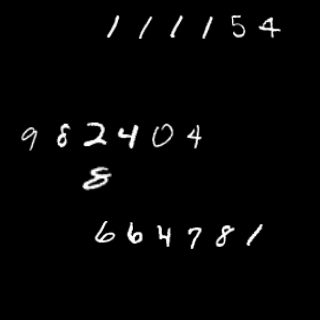 111154
982404
8
664781